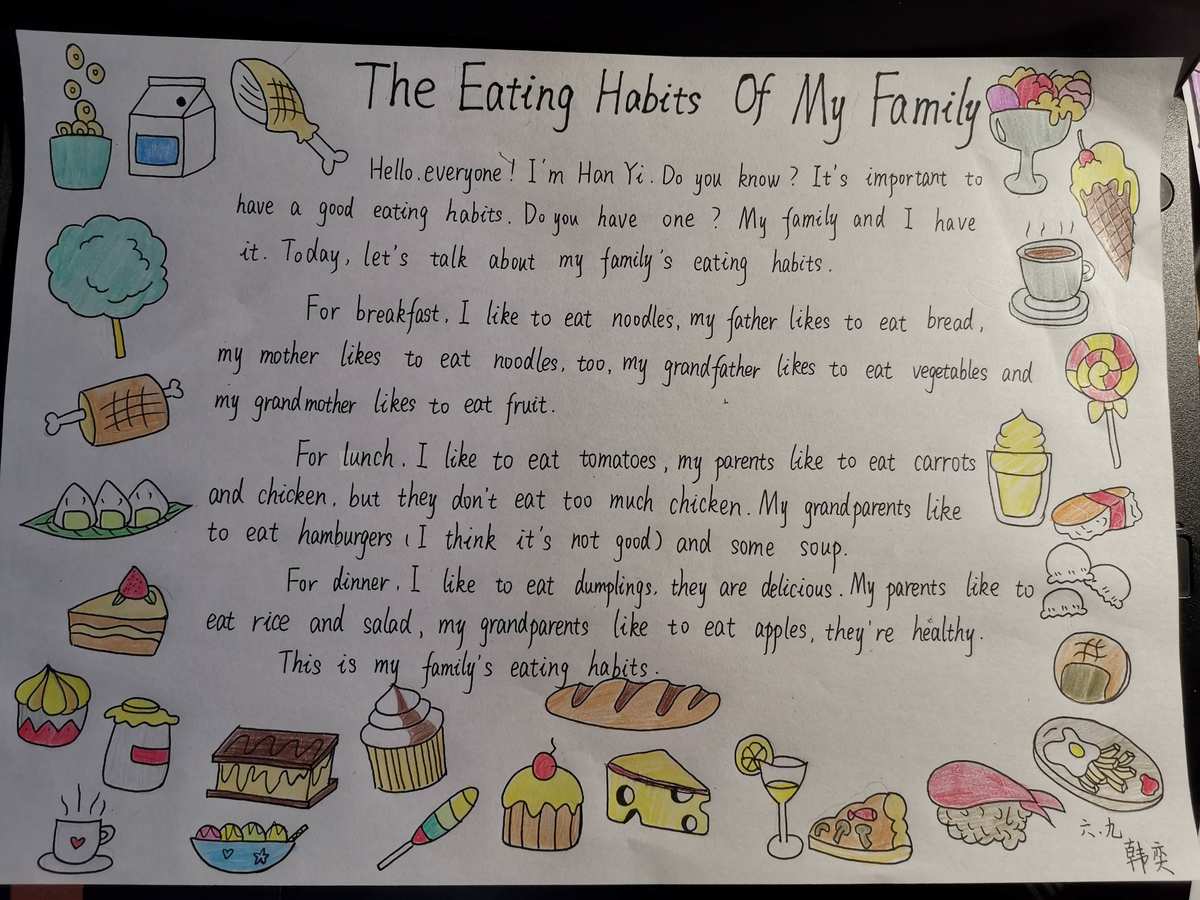 The Eating Habits Of My Family
Hello.everyone! I'm Han Yi. Do you know? It's important to
have a good eating habits. Do you have one? My family and I have
it. Today, let's talk about my family's eating habits.
For breakfast, I like to eat noodles, my father likes to eat bread,
my mother likes to eat noodles, too, my grandfather likes to eat vegetables and
my grandmother likes to eat fruit.
For lunch, I like to eat tomatoes, my parents like to eat carrots
and chicken, but they don't eat too much chicken. My grandparents like
to eat hamburgers (I think it's not good) and some soup.
For dinner, I like to eat dumplings, they are delicious. My parents like to
eat rice and salad, my grandparents like to eat apples, they're healthy.
This is my family's eating habits.
六.九
韩奕